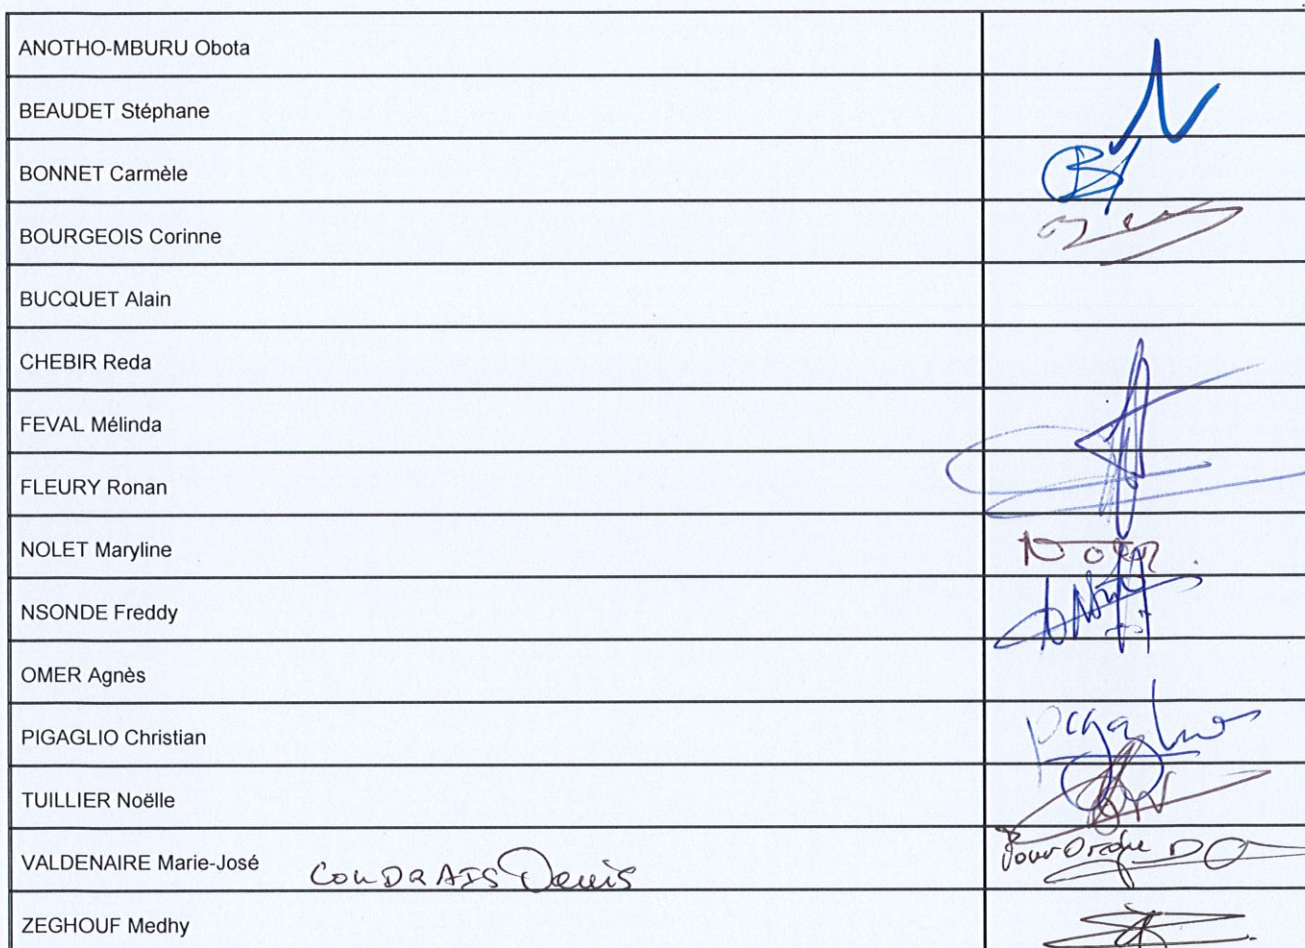 ANOTHO-MBURU Obota
BEAUDET Stéphane
BONNET Carmèle
BOURGEOIS Corinne
BUCQUET Alain
CHEBIR Reda
FEVAL Mélinda
FLEURY Ronan
NOLET Maryline
NSONDE Freddy
OMER Agnès
PIGAGLIO Christian
TUILLIER Noëlle
VALDENAIRE Marie-José Denis
ZEGHOUF Medhy